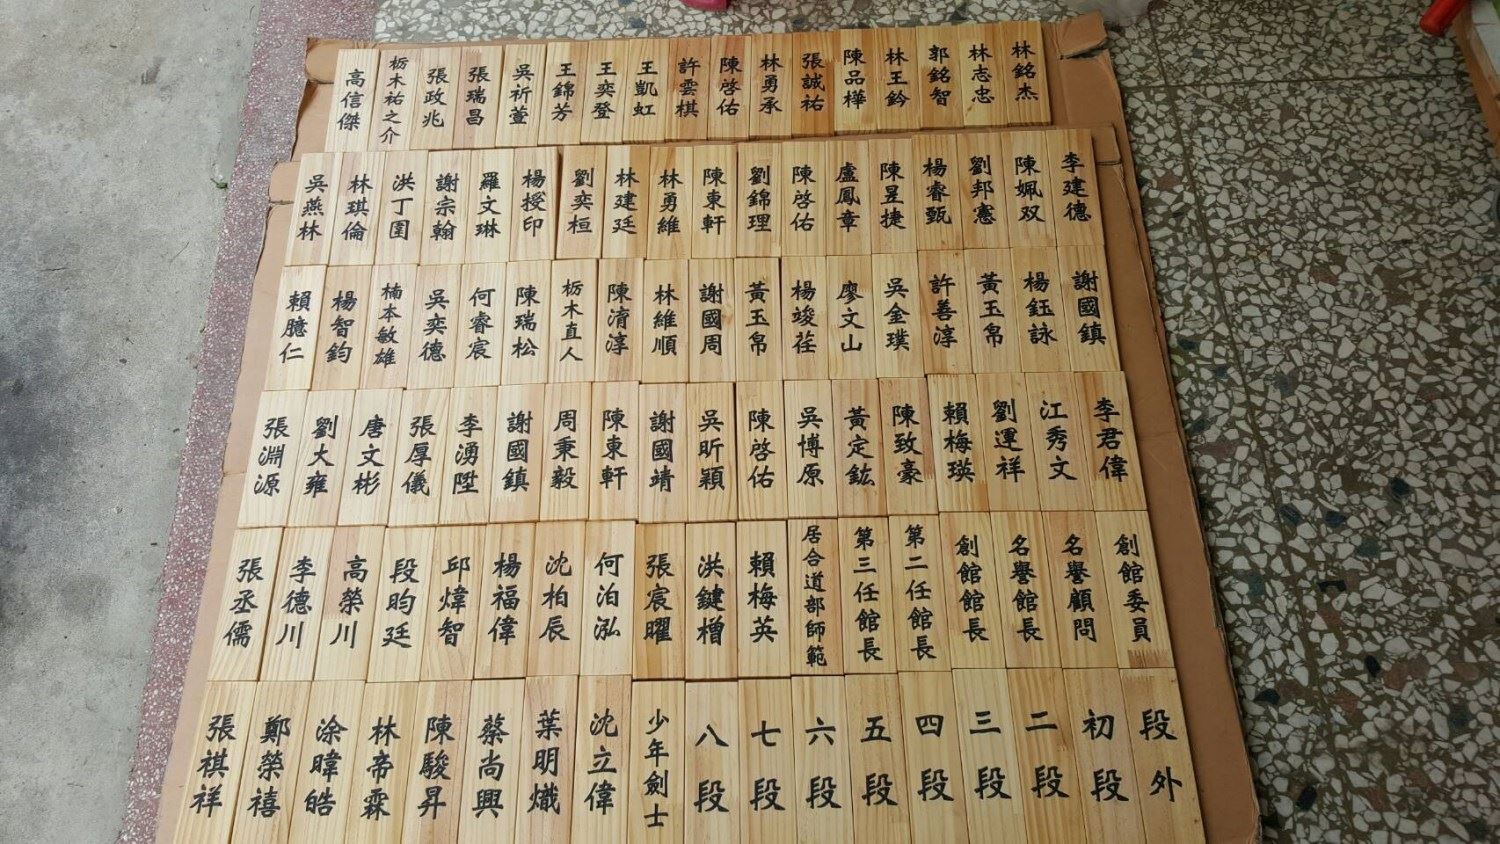 林銘杰
林志忠
郭銘智
林王鈐
陳品樺
張誠祐
林勇承
陳啓佑
許雲棋
王凱虹
王奕登
王錦芳
吳祈萱
張瑞昌
張政兆
栃木祐之介
高信傑
李建德
陳姵双
劉邦憲
楊睿甄
陳昱捷
盧鳳章
陳啓佑
劉錦理
陳東軒
林勇維
林建廷
劉奕桓
楊授印
羅文琳
謝宗翰
洪丁圍
林琪倫
吳燕林
謝國鎮
楊鈺詠
黃玉帛
許善淳
吳金璞
廖文山
楊竣荏
黃玉帛
謝國周
林維順
陳淯淳
栃木直人
陳瑞松
何睿宸
吳奕德
楠本敏雄
楊智鈞
賴臆仁
李君偉
江秀文
劉運祥
賴梅瑛
陳致豪
黃定鈜
吳博原
陳啓佑
吳昕穎
謝國靖
陳東軒
周秉毅
謝國鎮
李湧陞
張厚儀
唐文彬
劉大雍
張淵源
創館委員
名譽顧問
名譽館長
創館館長
第二任館長
第三任館長
居合道部師範
賴梅英
洪鍵橧
張宸曜
何泊泓
沈柏辰
楊福偉
邱煒智
段昀廷
高榮川
李德川
張丞儒
段外
初段
二段
三段
四段
五段
六段
七段
八段
少年劍士
沈立偉
葉明熾
蔡尚興
陳駿昇
林帝霖
涂暐皓
鄭榮禧
張祺祥